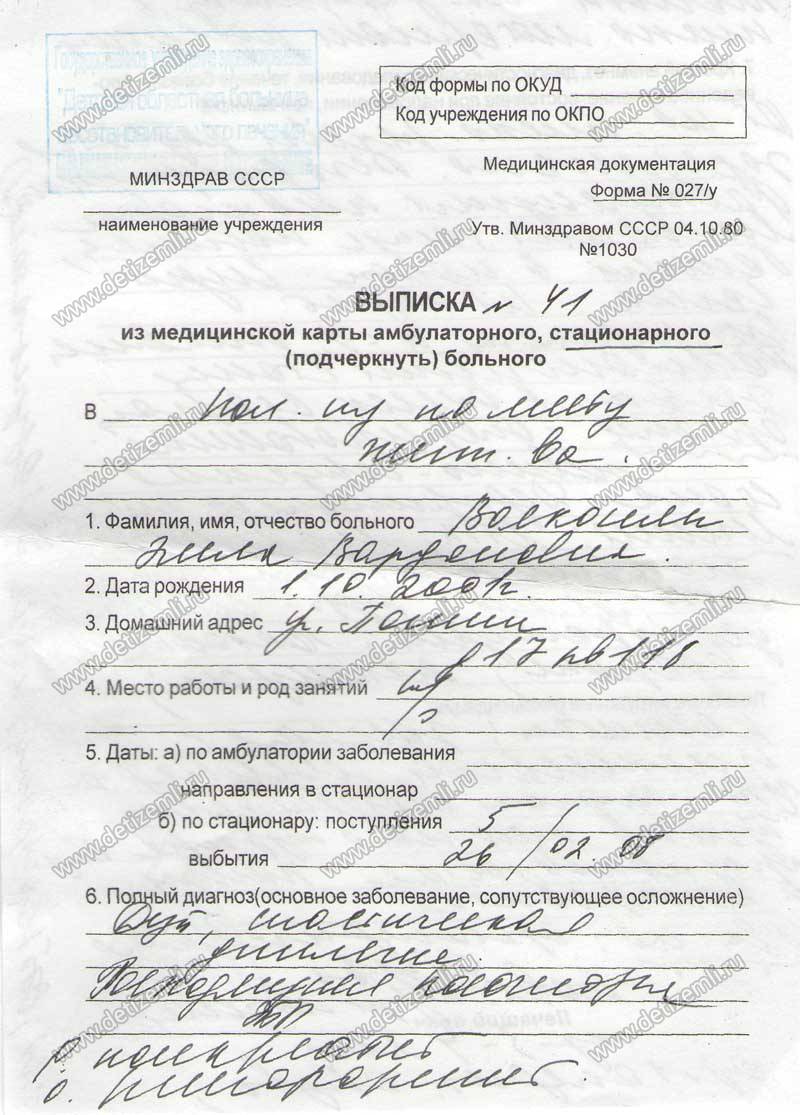 Код формы по ОКУД
Код учреждения по ОКПО
МИНЗДРАВ СССР
Медицинская документация
Форма № 027/у
наименование учреждения
Утв. Минздравом СССР 04.10.80
№1030
ВЫПИСКА N 41
из медицинской карты амбулаторного, стационарного
(подчеркнуть) больного
В пол. по месту
жит. ва.
1. Фамилия, имя, отчество больного
Вардановия.
2. Дата рождения 1.10.2001г.
3. Домашний адрес ул.
д 17 кв 118
4. Место работы и род занятий
5. Даты: а) по амбулатории заболевания
направления в стационар
б) по стационару: поступления 5
выбытия 26/02.08
6. Полный диагноз(основное заболевание, сопутствующее осложнение)
ДЦП, спастическая
диплегия.
www.detizemli.ru